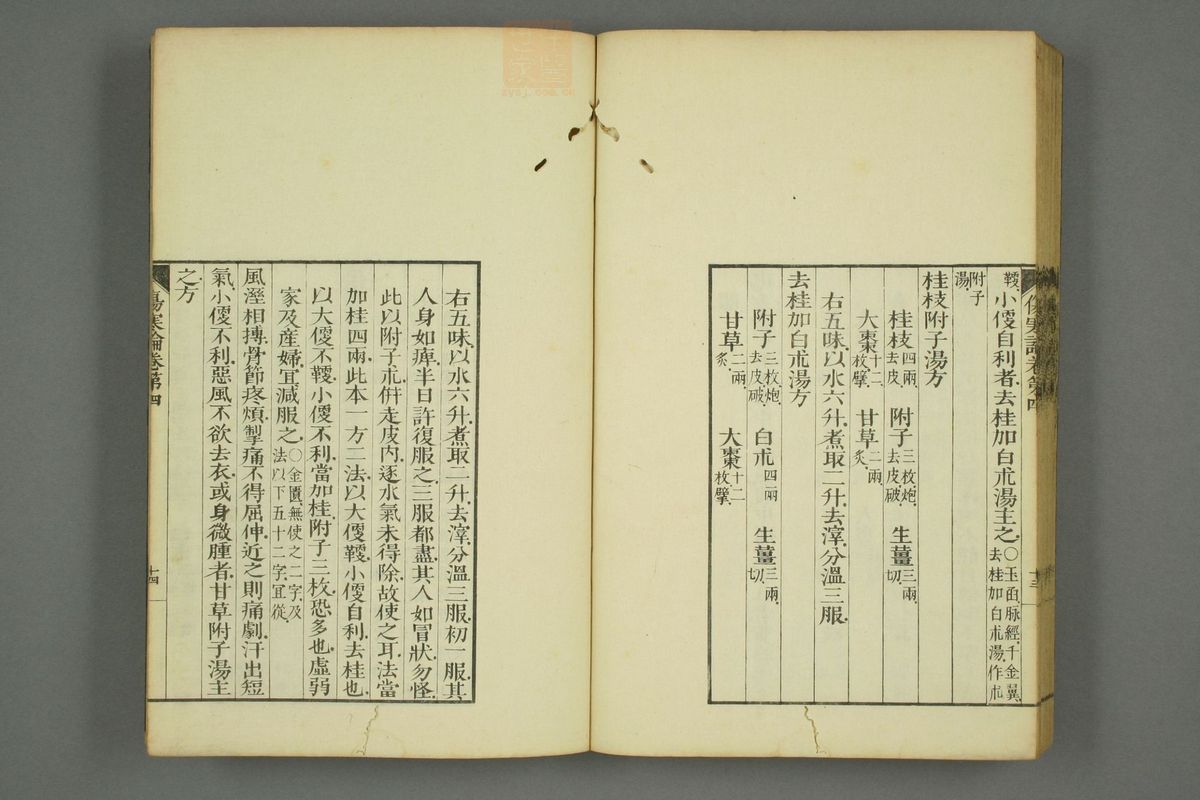 傷寒論卷第四
十三
鞕小便自利者去桂加白朮湯主之○玉函脉經千金翼去桂加白朮湯作朮
附子湯
桂枝附子湯方
桂枝四兩去皮 附子三枚炮去皮破 生薑三兩切
大棗十二枚擘 甘草二兩炙
右五味以水六升煮取二升去滓分溫三服
去桂加白朮湯方
附子三枚炮去皮破 白朮四兩 生薑三兩切
甘草二兩炙 大棗十二枚擘
右五味以水六升煮取二升去滓分溫三服初一服其
人身如痺半日許復服之三服都盡其人如冒狀勿怪
此以附子朮倂走皮內逐水氣未得除故使之耳法當
加桂四兩此本一方二法以大便鞕小便自利去桂也
以大便不鞕小便不利當加桂附子三枚恐多也虛弱
家及産婦宜減服之○金匱無使之二字及法以下五十二字宜從
風溼相搏骨節疼煩掣痛不得屈伸近之則痛劇汗出短
氣小便不利惡風不欲去衣或身微腫者甘草附子湯主
之方
傷寒論卷第四
十四
zysj.com.cn